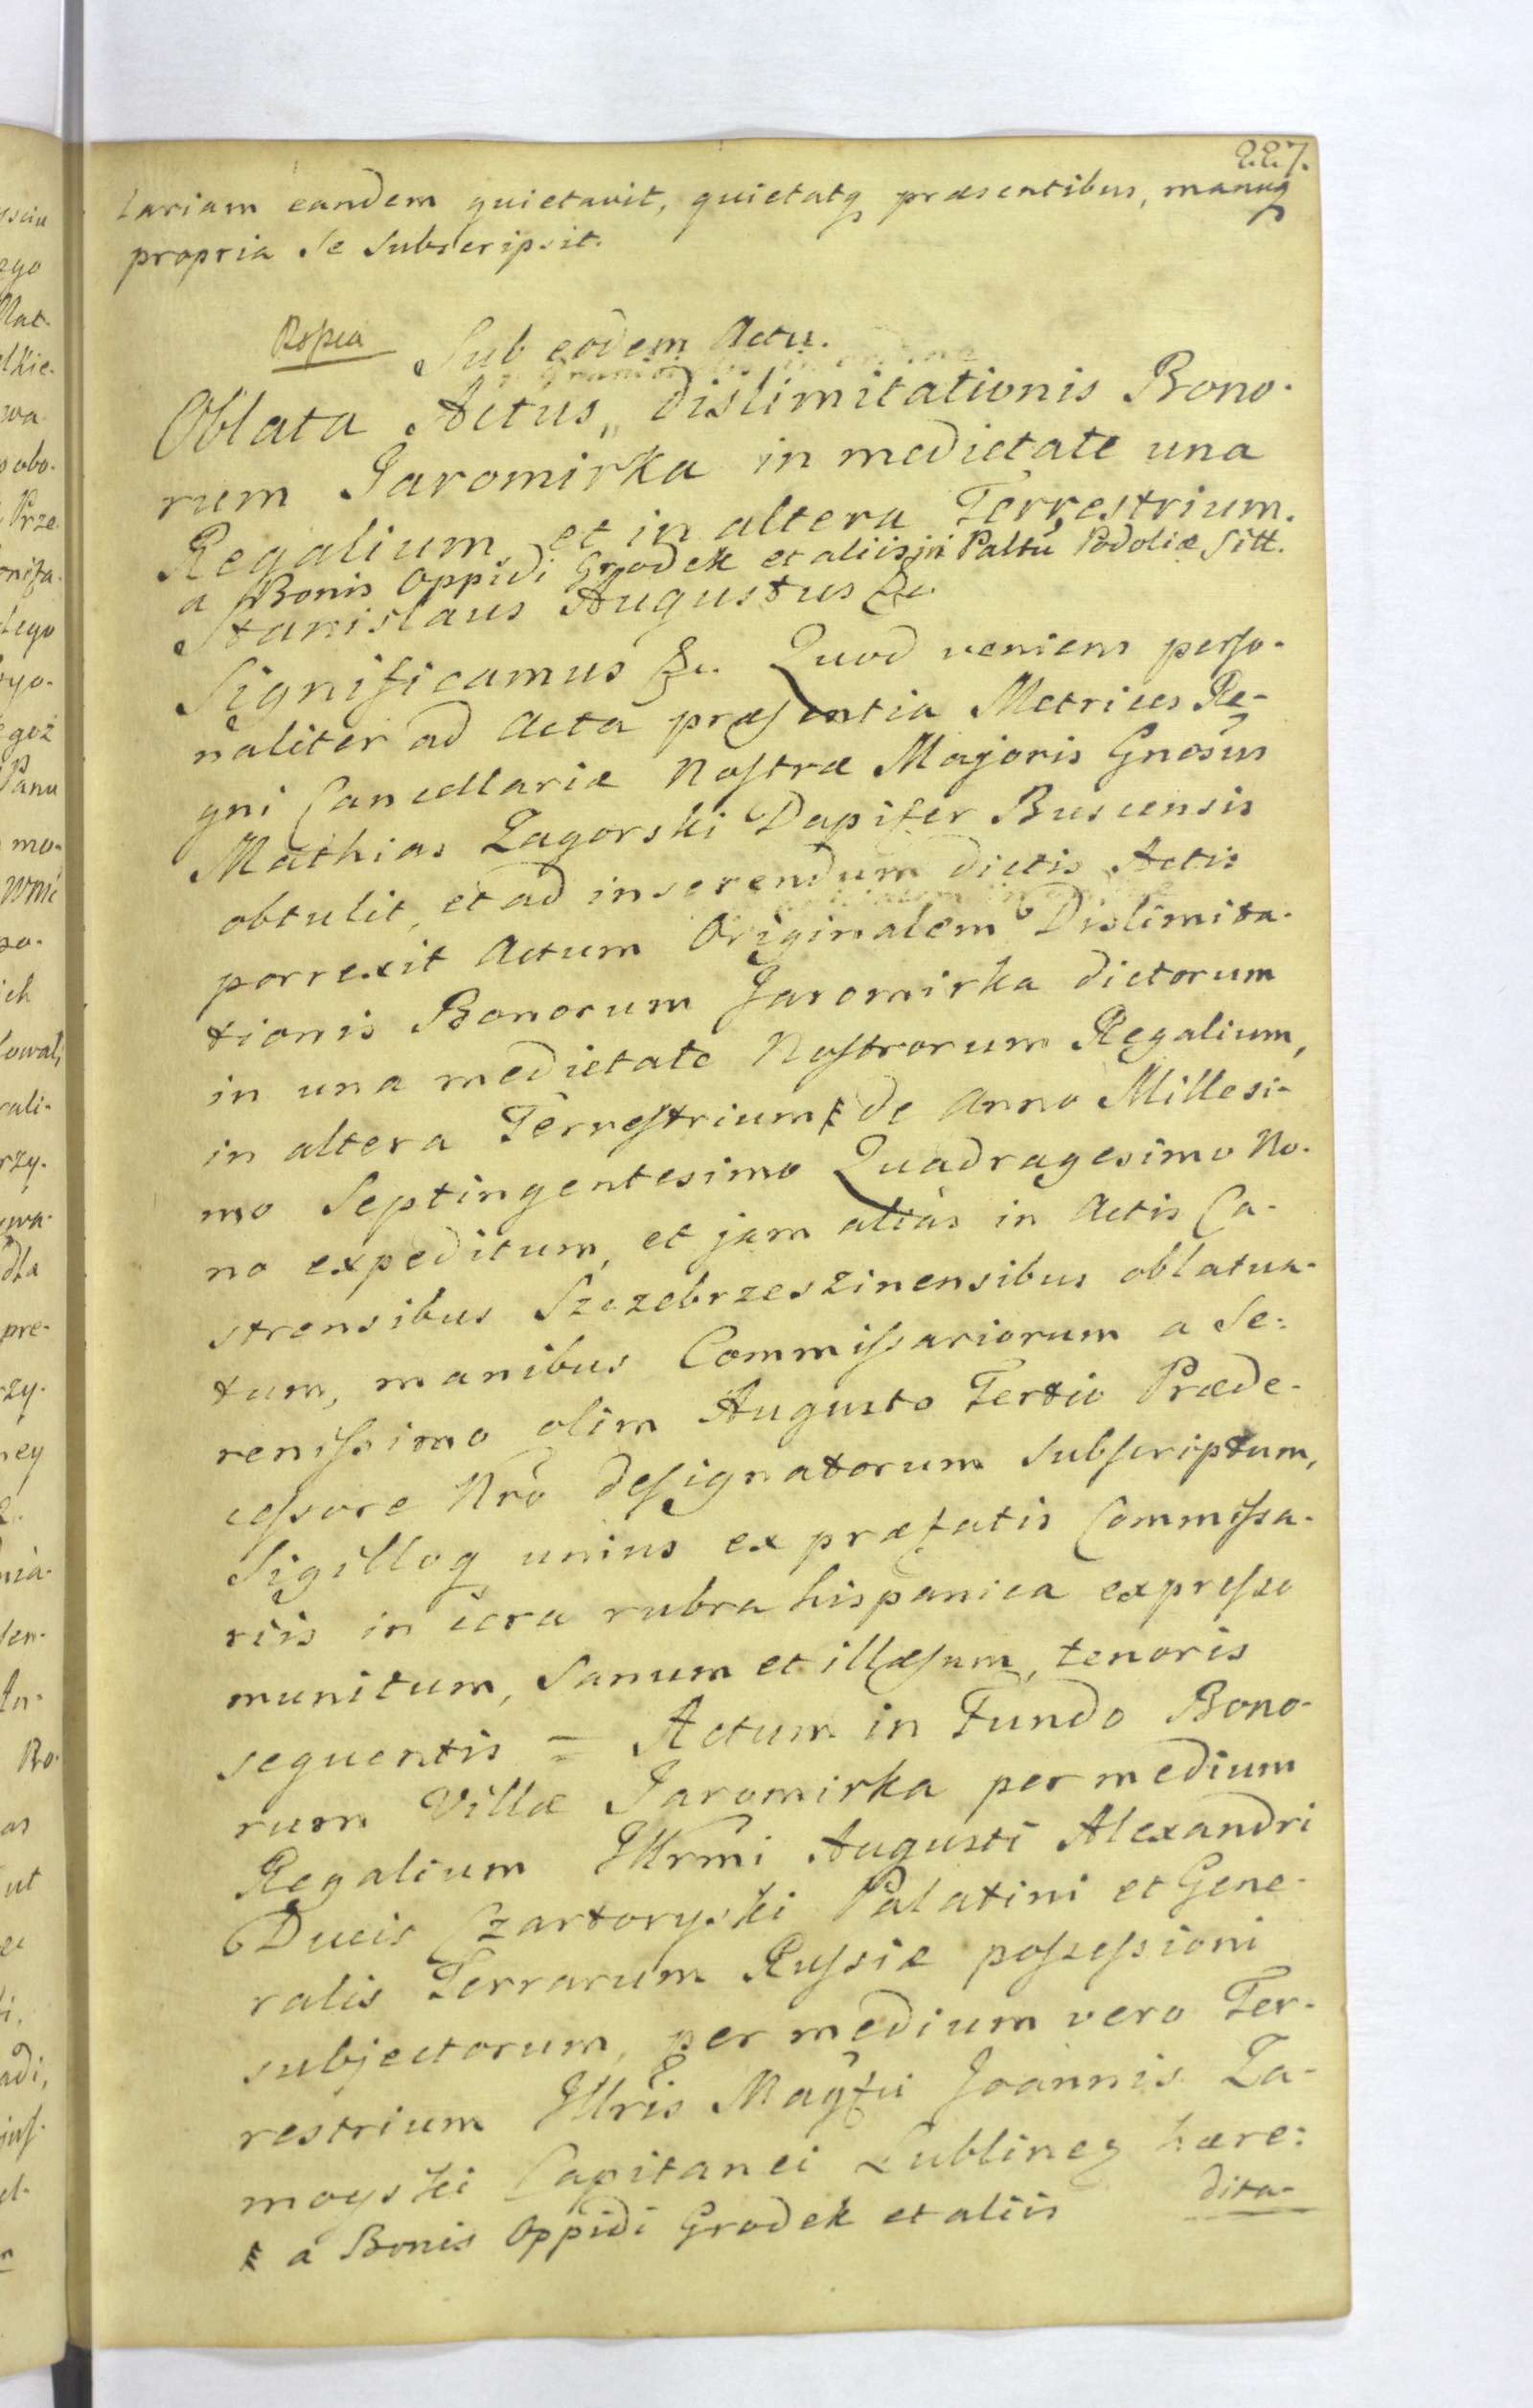 227.
lariam eandem quietavit, quietatq præsentibus, manuq
propria se subscripsit.
Sub eodem Actu.
Oblata Actus,, dislimitationis Bono-
rum Jaromirka in medietate una
Regalium, et in altera Terrestrium.
a Bonis Oppidi Grodek et aliis in Paltu Podoliæ Sitt.
Stanislaus Augustus &c.
Significamus &c. Quod veniens perso-
naliter ad Acta præsentia Metrices Re-
gni Cancellariæ Nostræ Majoris Gnosus
Mathias Zagorski Dapifer Buscensis
obtulit, et ad inserendum dictis Actis
porrexit Actum Originalem Dislimita-
tionis Bonorum Jaromirka dictorum
in una medietate Nostrorum Regalium,
in altera Terrestrium ⹋ de Anno Millesi-
mo Septingentesimo Quadragesimo No-
no expeditum, et jam alias in Actis Ca-
strensibus Szczebrzeszinensibus oblatua-
tum, manibus Commissariorum a Se:
renissimo olim Augusto Tertio Præde-
cessore Nrõ designatorum subscriptum,
Sigilloq unius ex præfatis Commissa-
riis in cera rubra hispanica expresso
munitum, sanum et illæsum, tenoris
sequentis = Actum in Fundo Bono-
rum Villæ Jaromirka per medium
Regalium Illrmi Augusti Alexandri
Ducis Czartoryski Palatini et Gene-
ralis Terrarum Russiæ possessioni
subjectorum, per medium vero Ter-
restrium Illris Magfci Joannis Za-
moyski Capitanei Lublineg hære:
⹋ a Bonis Oppidi Grodek et aliis
dita-